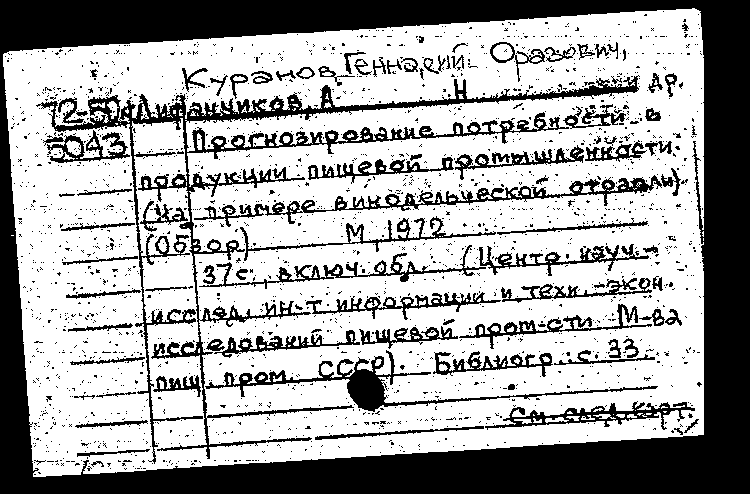 Куранов Геннадий Оразович,
72-50 Лифанчиков, А Н и др.
5043 Прогнозирование потребности в
продукции пищевой промышленности.
(На примере винодельческой отрасли)
(Обзор) М, 1972
37с., включ. обл. (Центр. науч.-
исслед. ин-т информации и техн.-экон.
исследований пищевой пром-сти М-ва
пищ. пром. СССР). Библиогр.: с. 33.
См. след. карт.